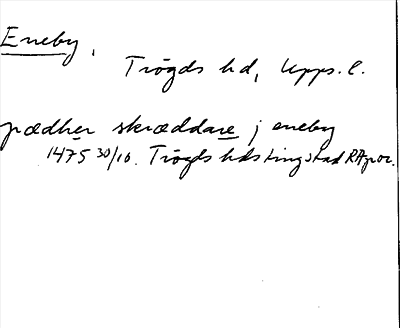 Eneby,
Trögds hd, Upps. l.
pædher skræddare j eneby
1475 30/10. Trögds hds tingstad RAp or.